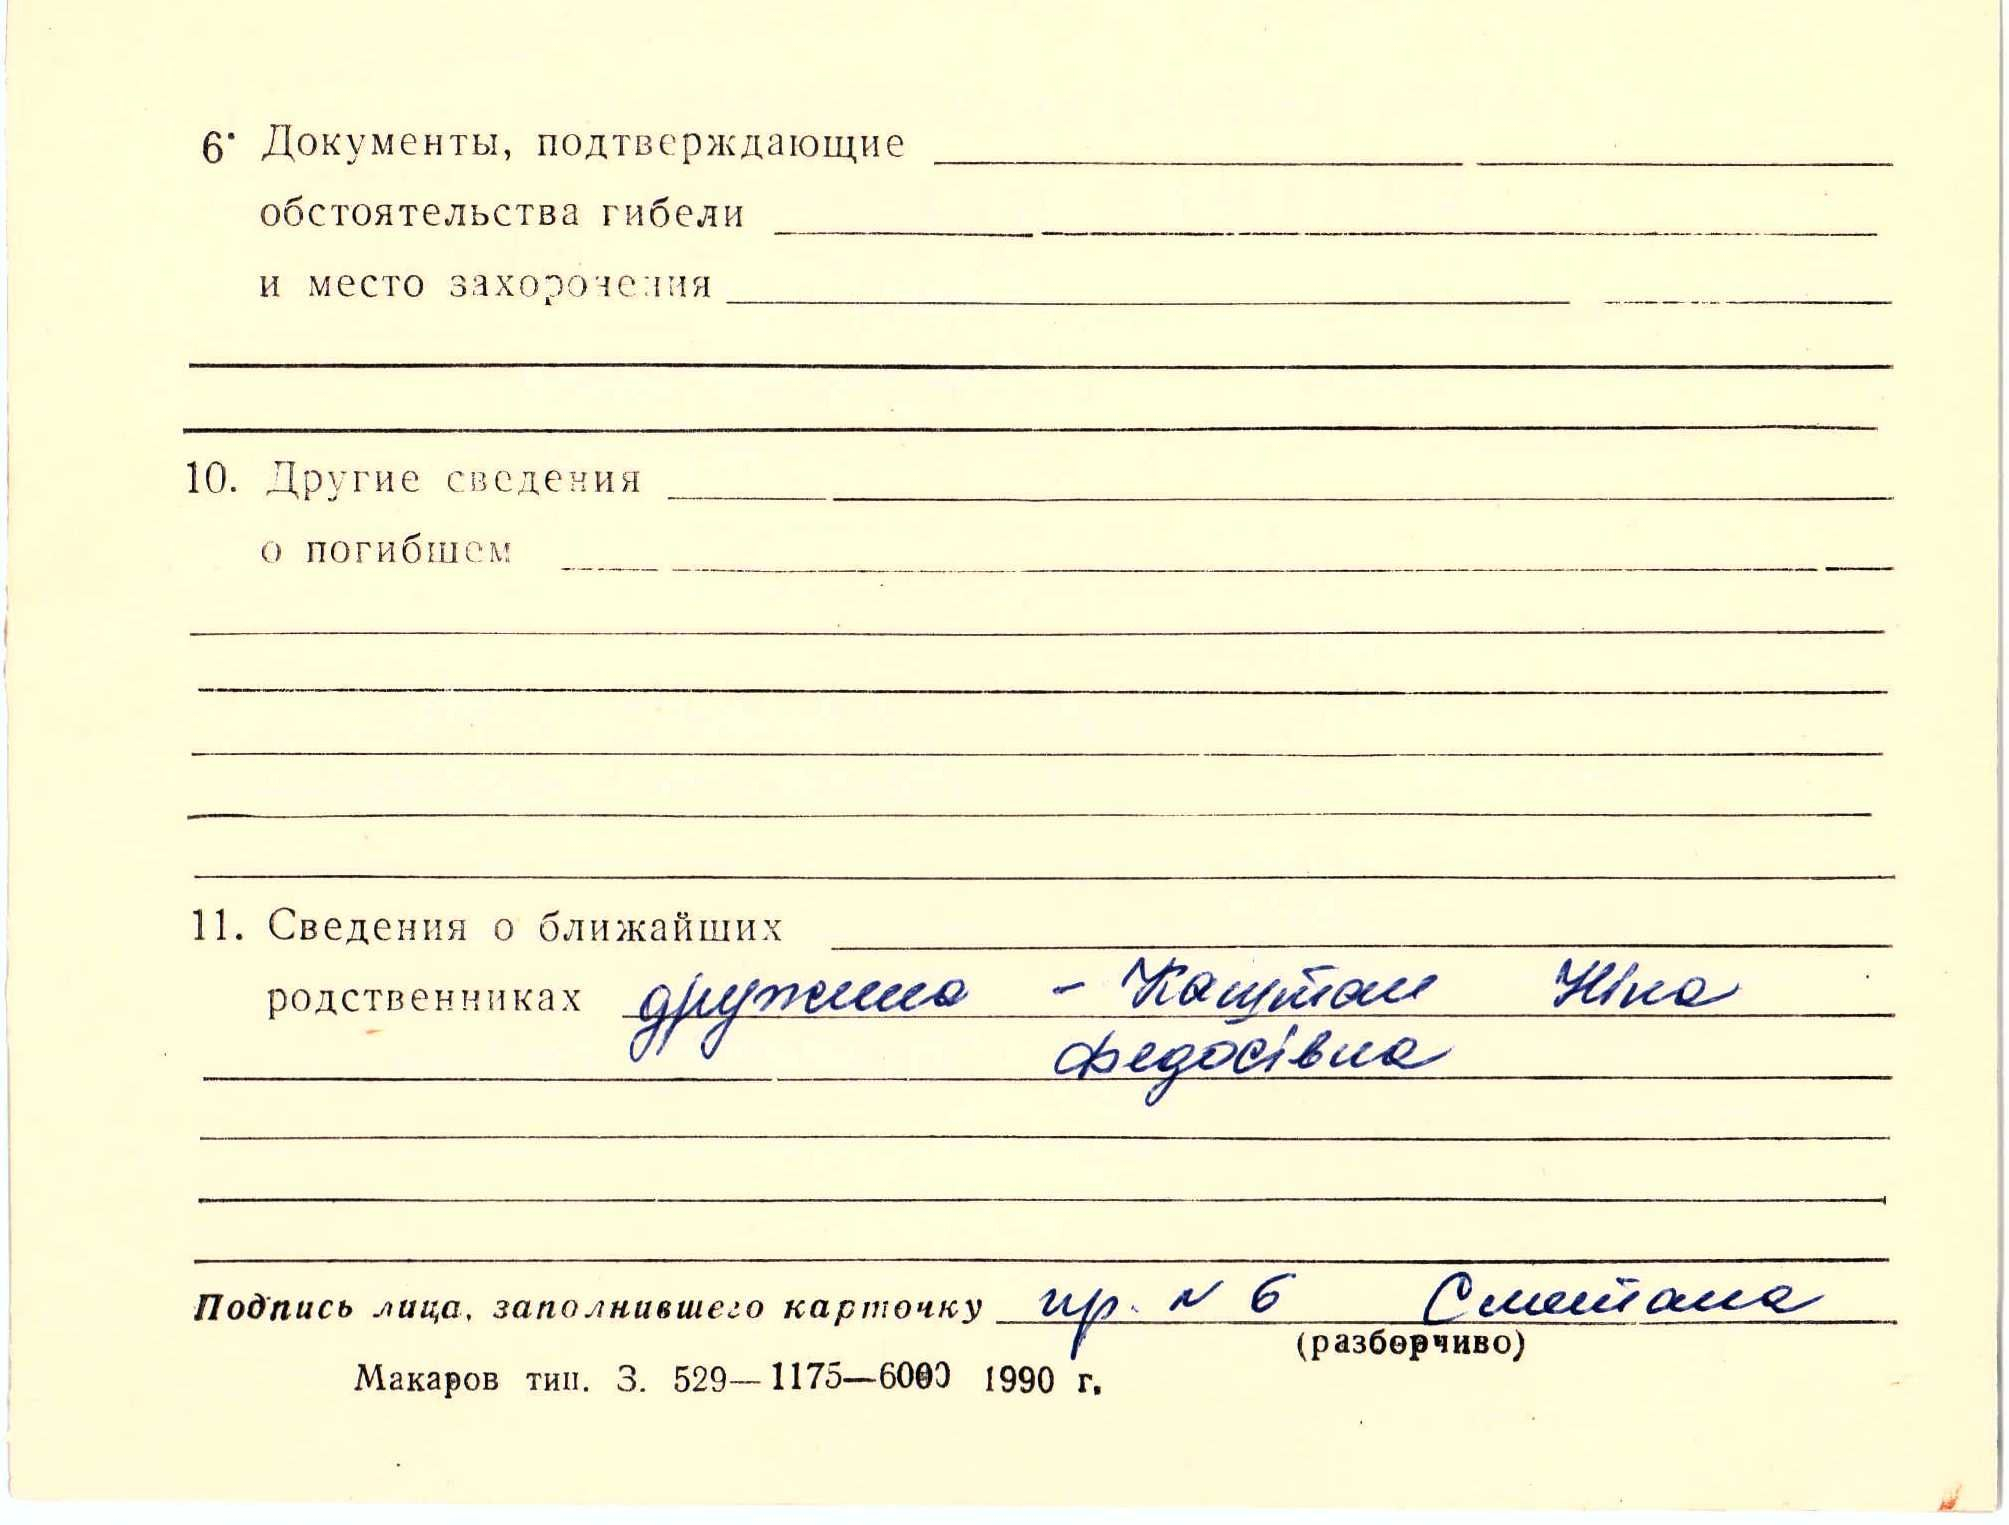 6. Документы, подтверждающие
обстоятельства гибели
и место захоронения
10. Другие сведения
о погибшем
11. Сведения о ближайших
родственниках дружина - Каштан Ніна
Федосівна
Подпись лица, заполнившего карточку пр. N 6 Сметана
(разборчиво)
Макаров тип. З. 529—1175—6000 1990 г.